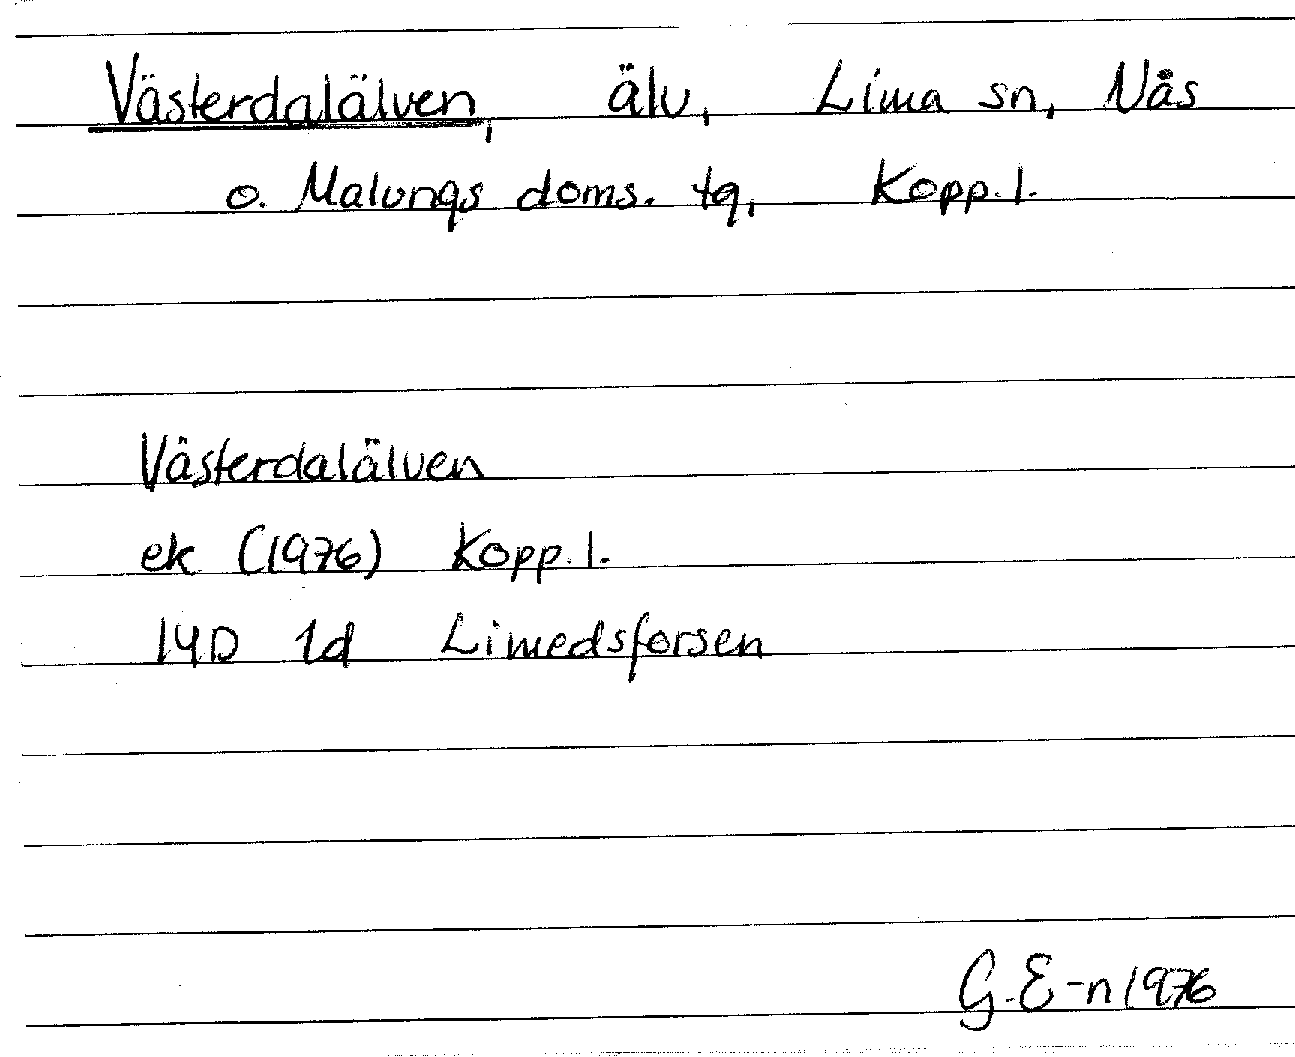 Västerdalälven, älv, Lima sn, Nås
o. Malungs doms. tg, Kopp. l.
Västerdalälven
ek (1976) Kopp. l.
14D 1d Limedsforsen
G. E-n 1976